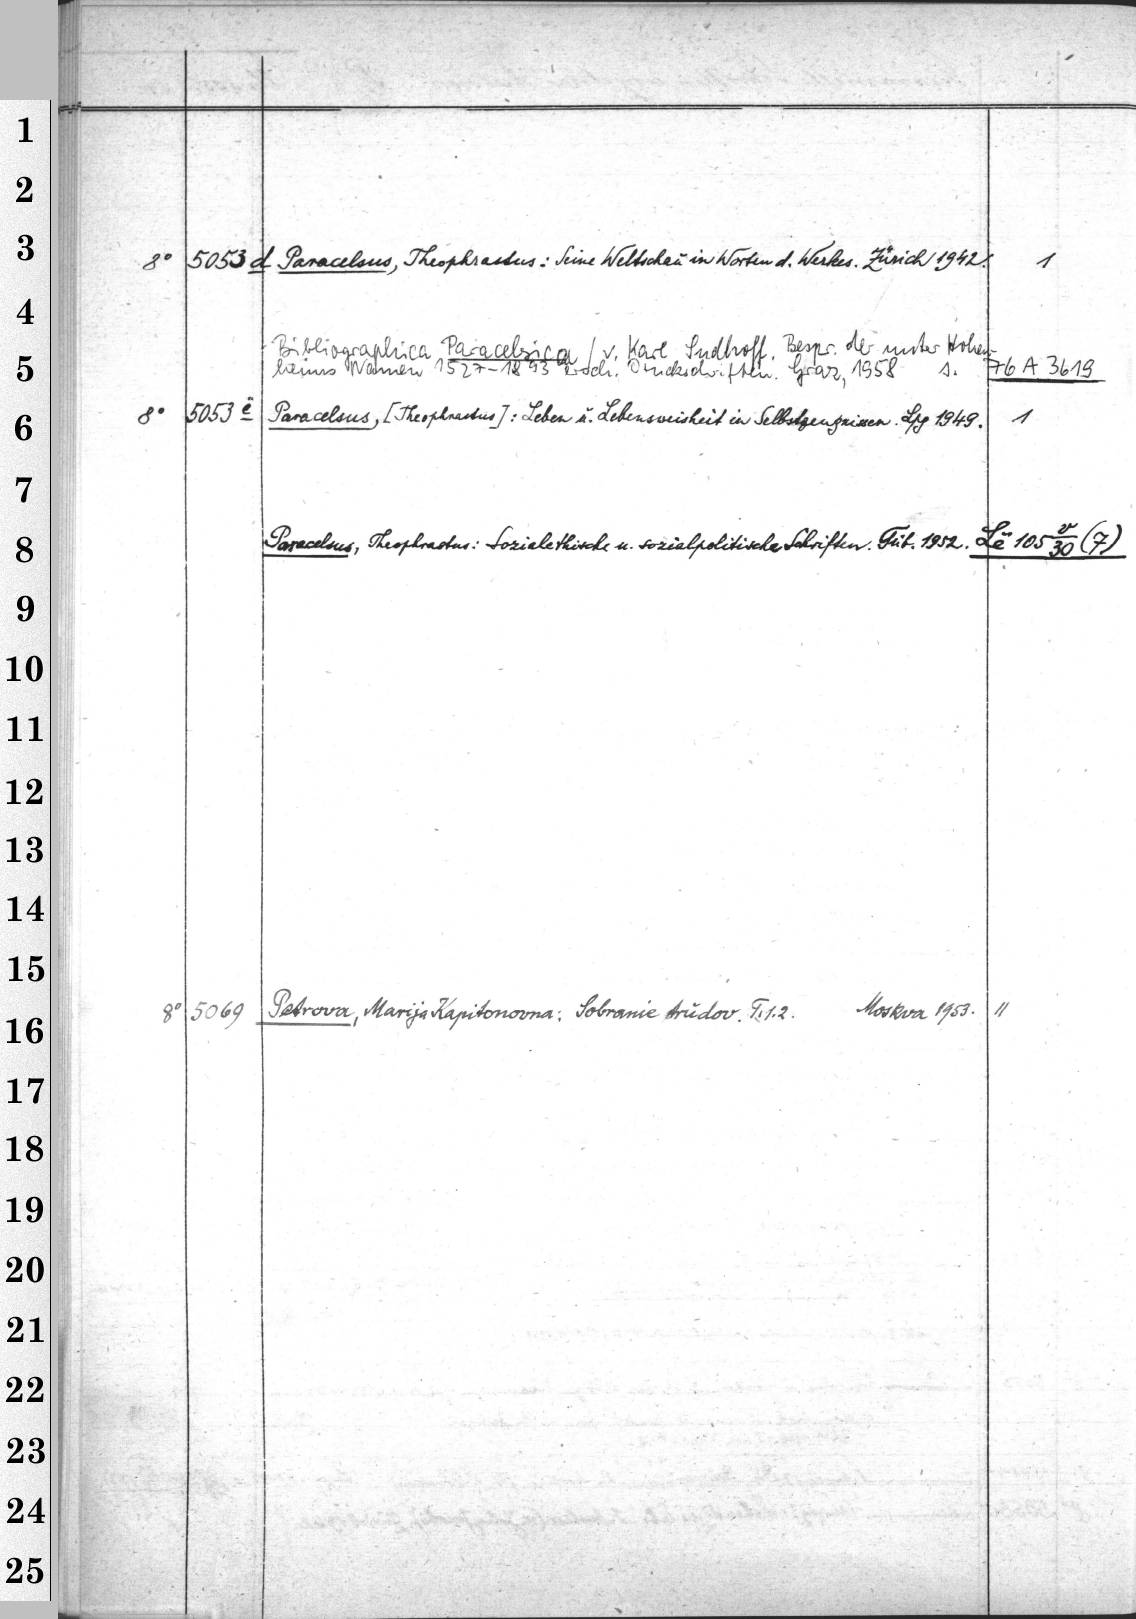 1
2
3
8° 5053 d Paracelsus, Theophrastus: Seine Weltschaŭ in Worten d. Werkes. Zürich 1942. 1
4
Bibliographica Paracelsica / v. Karl Sudhoff. Bespr. der unter Hohen-
5
heims Namen 1527-1893 ersch. Druckschriften. Graz, 1958 s. 76 A 3619
6
8° 5053 ë Paracelsus, [Theophrastus]: Leben ŭ. Lebensweisheit in Selbstzeugnissen. Lpg 1949. 1
7
8
Paracelsus, Theophrastus: Sozialethische u. sozialpolitische Schriften. Tüb. 1952. Lë 105 v/30 (7)
9
10
11
12
13
14
15
8° 5069 Petrova, Marija Kapitonovna: Sobranie trŭdov. T. 1.2. Moskva 1953. 11
16
17
18
19
20
21
22
23
24
25